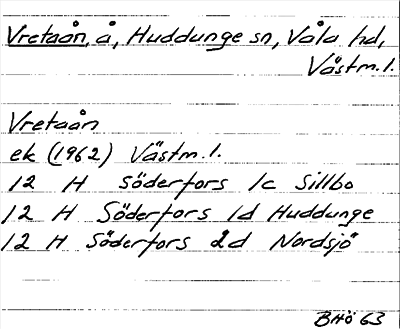 Vretaån, å, Huddunge sn, Våla hd,
Västm. l.
Vretaån
ek (1962) Västm. l.
12 H Söderfors 1c Sillbo
12 H Söderfors 1d Huddunge
12 H Söderfors 2d Nordsjö
BHö 63